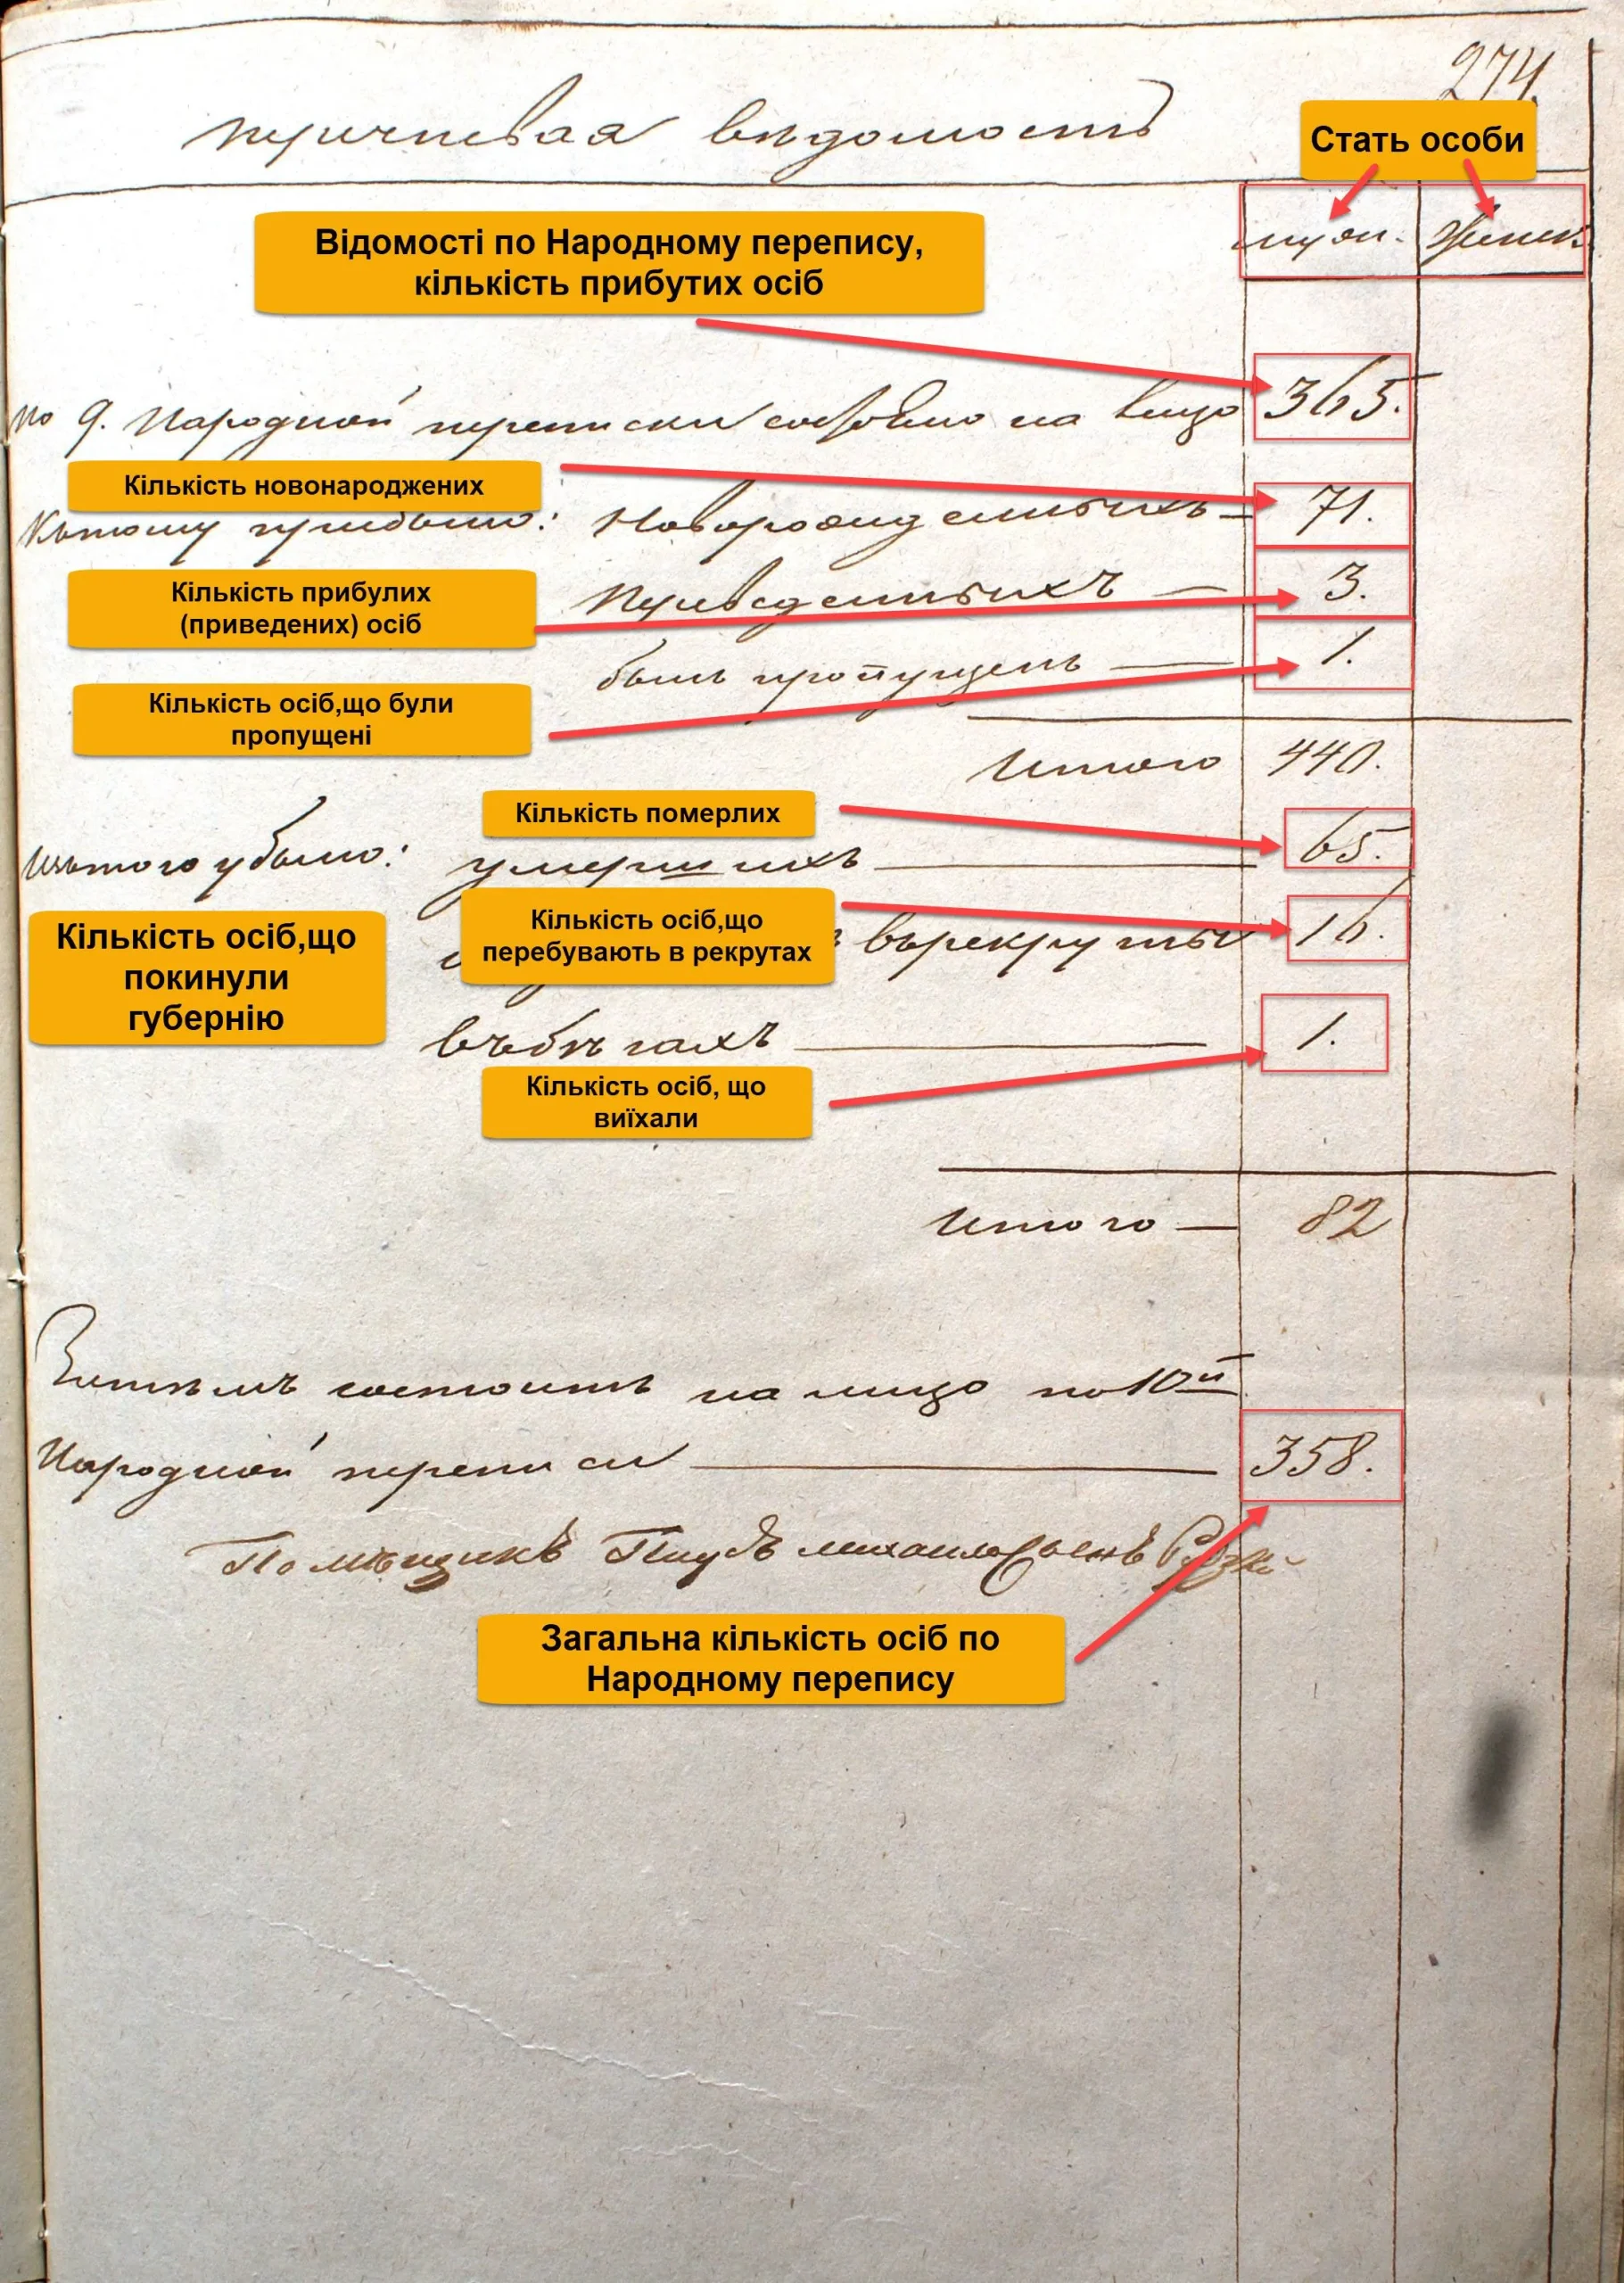 274.
перечневая вѣдомость
Стать особи
муж. женск.
Відомості по Народному перепису,
кількість прибутих осіб
По 9. Народной переписи состояло на лицо 365.
Кількість новонароджених
Къ тому прибыло: Новорожденныхъ — 71.
Кількість прибулих
(приведених) осіб
Переведенныхъ — 3.
былъ пропущенъ — 1.
Кількість осіб,що були
пропущені
Итого 440.
Кількість померлих
Изъ того убыло: умершихъ — 65.
Кількість осіб,що
перебувають в рекрутах
въ рекруты 16.
Кількість осіб,що
покинули
губернію
въ бѣгахъ — 1.
Кількість осіб, що
виїхали
Итого — 82
Затѣмъ состоитъ на лицо по 10й
Народной переписи — 358.
Помѣщикъ
Загальна кількість осіб по
Народному перепису